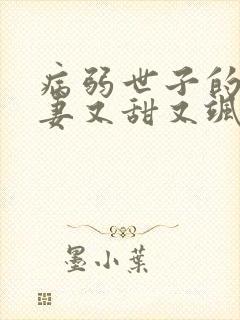 病弱世子的
妻又甜又飒
墨小叶